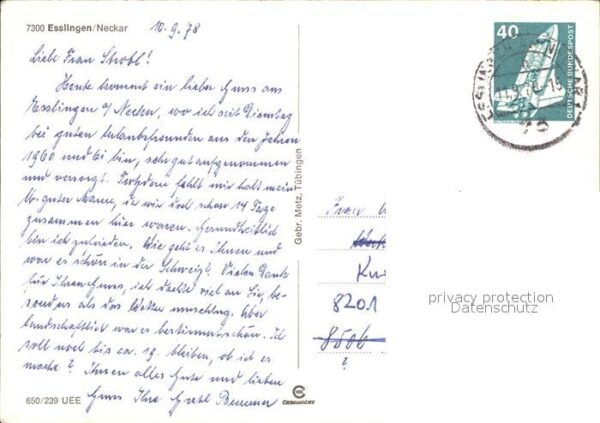 7300 Esslingen/Neckar
10.9.78
Liebe Frau Strobl!
Heute kommt ein lieber Gruss aus
Esslingen a/Neckar, wo ich seit Dienstag
bei guten Urlaubsfreunden aus den Jahren
1960 und 61 bin, sehr gut aufgenommen
und versorgt. Trotzdem fehlt mir halt mein
lb. guter Mann, da wir doch schon 14 Tage
zusammen hier waren. Gesundheitlich
bin ich zufrieden. Wie geht es Ihnen und
war es schön in der Schweiz? Vielen Dank
für Ihren Gruss, ich dachte viel an Sie, be-
sonders als das Wetter umschlug. Aber
landschaftlich war es bestimmt schön. Ich
soll noch bis ca. 19. bleiben, ob ich es
mache? Ihnen alles Gute und lieben
Gruss Ihre Gretl
650/239 UEE
Gebr. Metz, Tübingen
40
DEUTSCHE BUNDESPOST
Frau
8201
8506
?
privacy protection
Datenschutz